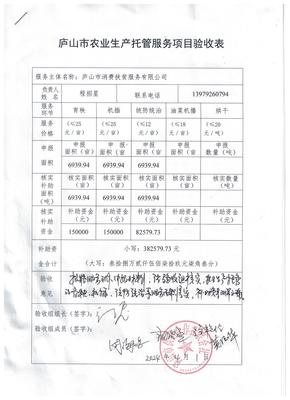 庐山市农业生产托管服务项目验收表
服务主体名称：庐山市消费扶贫服务有限公司
负责人姓名 程招星 联系电话 13979260794
服务环节 育秧 机插 统防统治 油菜机播 烘干
服务价格 (≤25元/亩) (≤25元/亩) (≤12元/亩) (≤18元/亩) (≤20元/吨)
申报面积 申报面积（亩） 申报面积（亩） 申报面积（亩） 申报面积（亩） 申报数量（吨）
6939.94 6939.94 6939.94
核实补助面积 核实面积（亩） 核实面积（亩） 核实面积（亩） 核实面积（亩） 核实数量（吨）
6939.94 6939.94 6939.94
核实补助资金 补助资金（元） 补助资金（元） 补助资金（元） 补助资金（元） 补助资金（元）
150000 150000 82579.73
补助资金合计 小写：382579.73 元
（大写：叁拾捌万贰仟伍佰柒拾玖元柒角叁分）
验收意见
验收组长（签字）：
验收组成员（签字）：
2024年4月1日